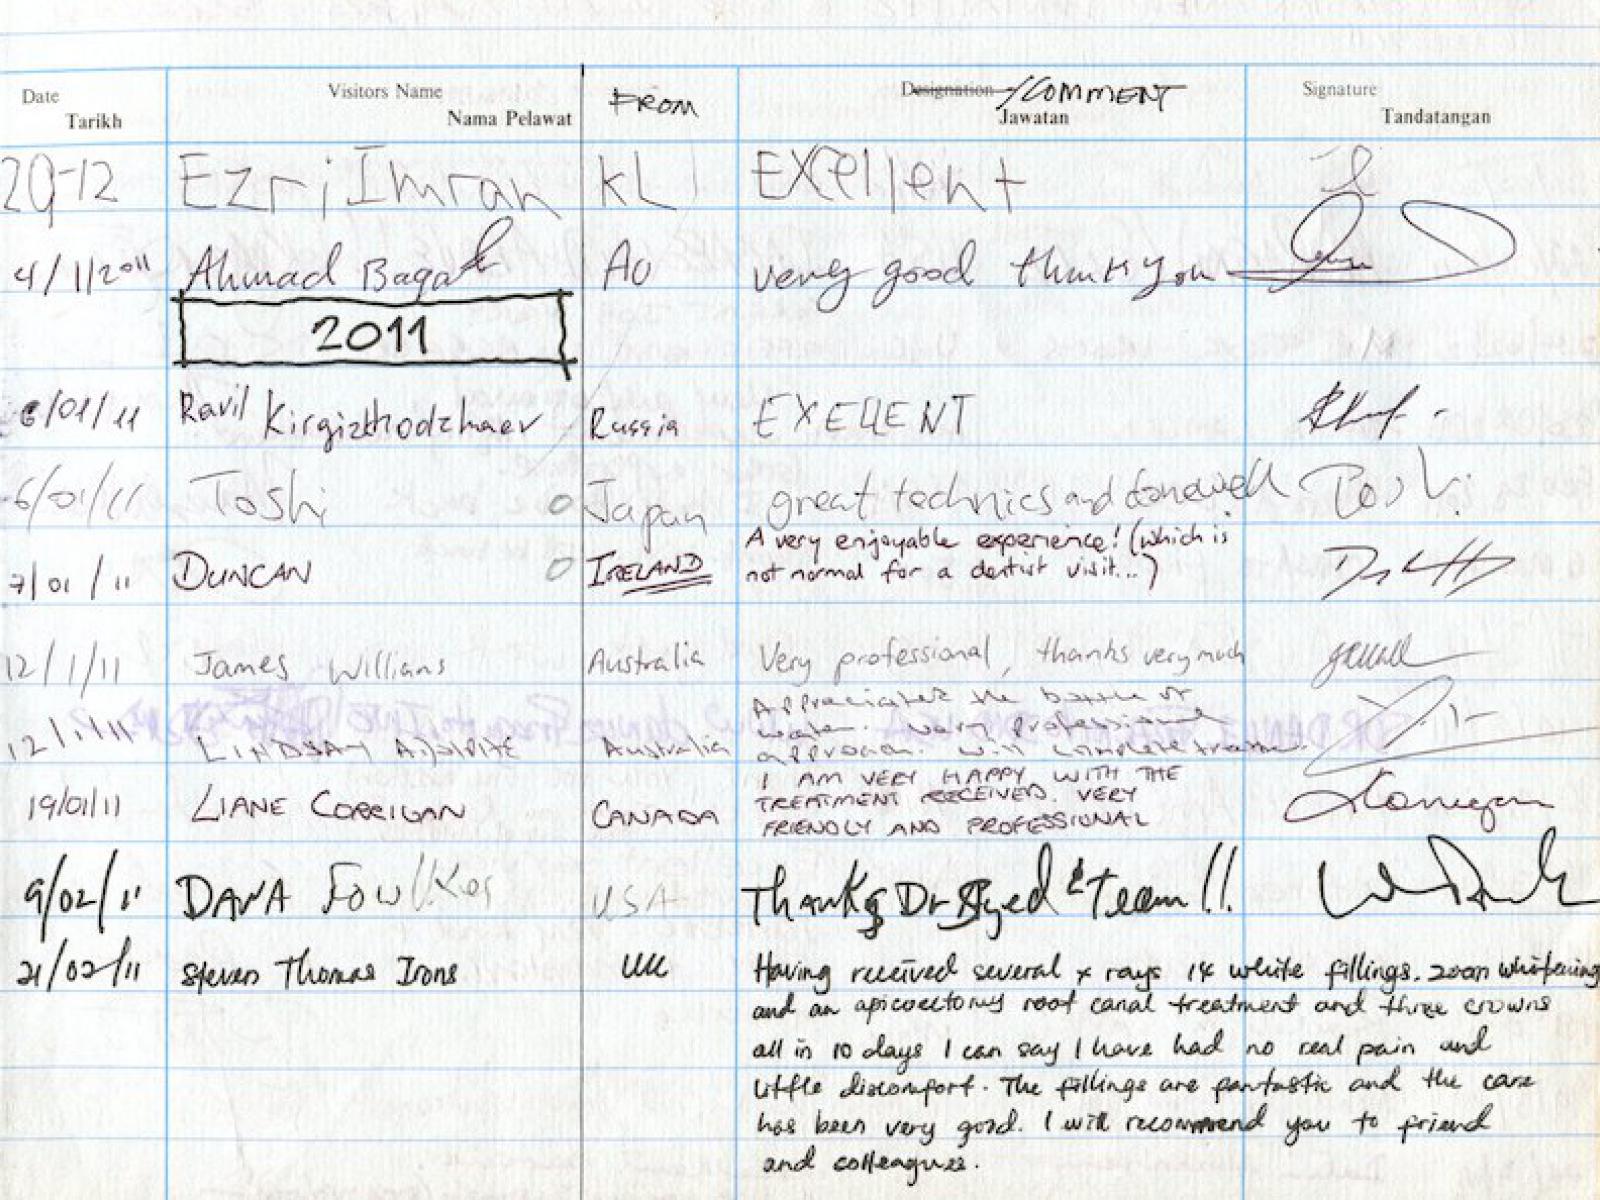 Date Visitors Name FROM Designation/COMMENT Signature
Tarikh Nama Pelawat Jawatan Tandatangan
29-12 Ezri Imran KL EXellent
4/1/2011 Ahmad Bagak AU very good thank you
2011
6/01/11 Ravil Kirgizkhodzhaev Russia EXELLENT
6/01/11 Toshi Japan great technics and donewell Toshi
A very enjoyable experience! (which is
7/01/11 DUNCAN IRELAND not normal for a dentist visit...)
12/1/11 James Willians Australia Very professional, thanks very much
Appreciated the bottle of
water. Very professional
12/1/11 LINDSAY Australia approach. Will complete
I AM VERY HAPPY WITH THE
19/01/11 LIANE CORRIGAN CANADA TREATMENT RECEIVED. VERY
FRIENDLY AND PROFESSIONAL
9/02/11 DANA Fowlkes USA Thanks Dr Syed & Team!!
21/02/11 Steven Thomas Irons UK Having received several x rays 14 white fillings. zoom whitening
and an apicoectomy root canal treatment and three crowns
all in 10 days I can say I have had no real pain and
little discomfort. The fillings are fantastic and the care
has been very good. I will recommend you to friend
and colleagues.